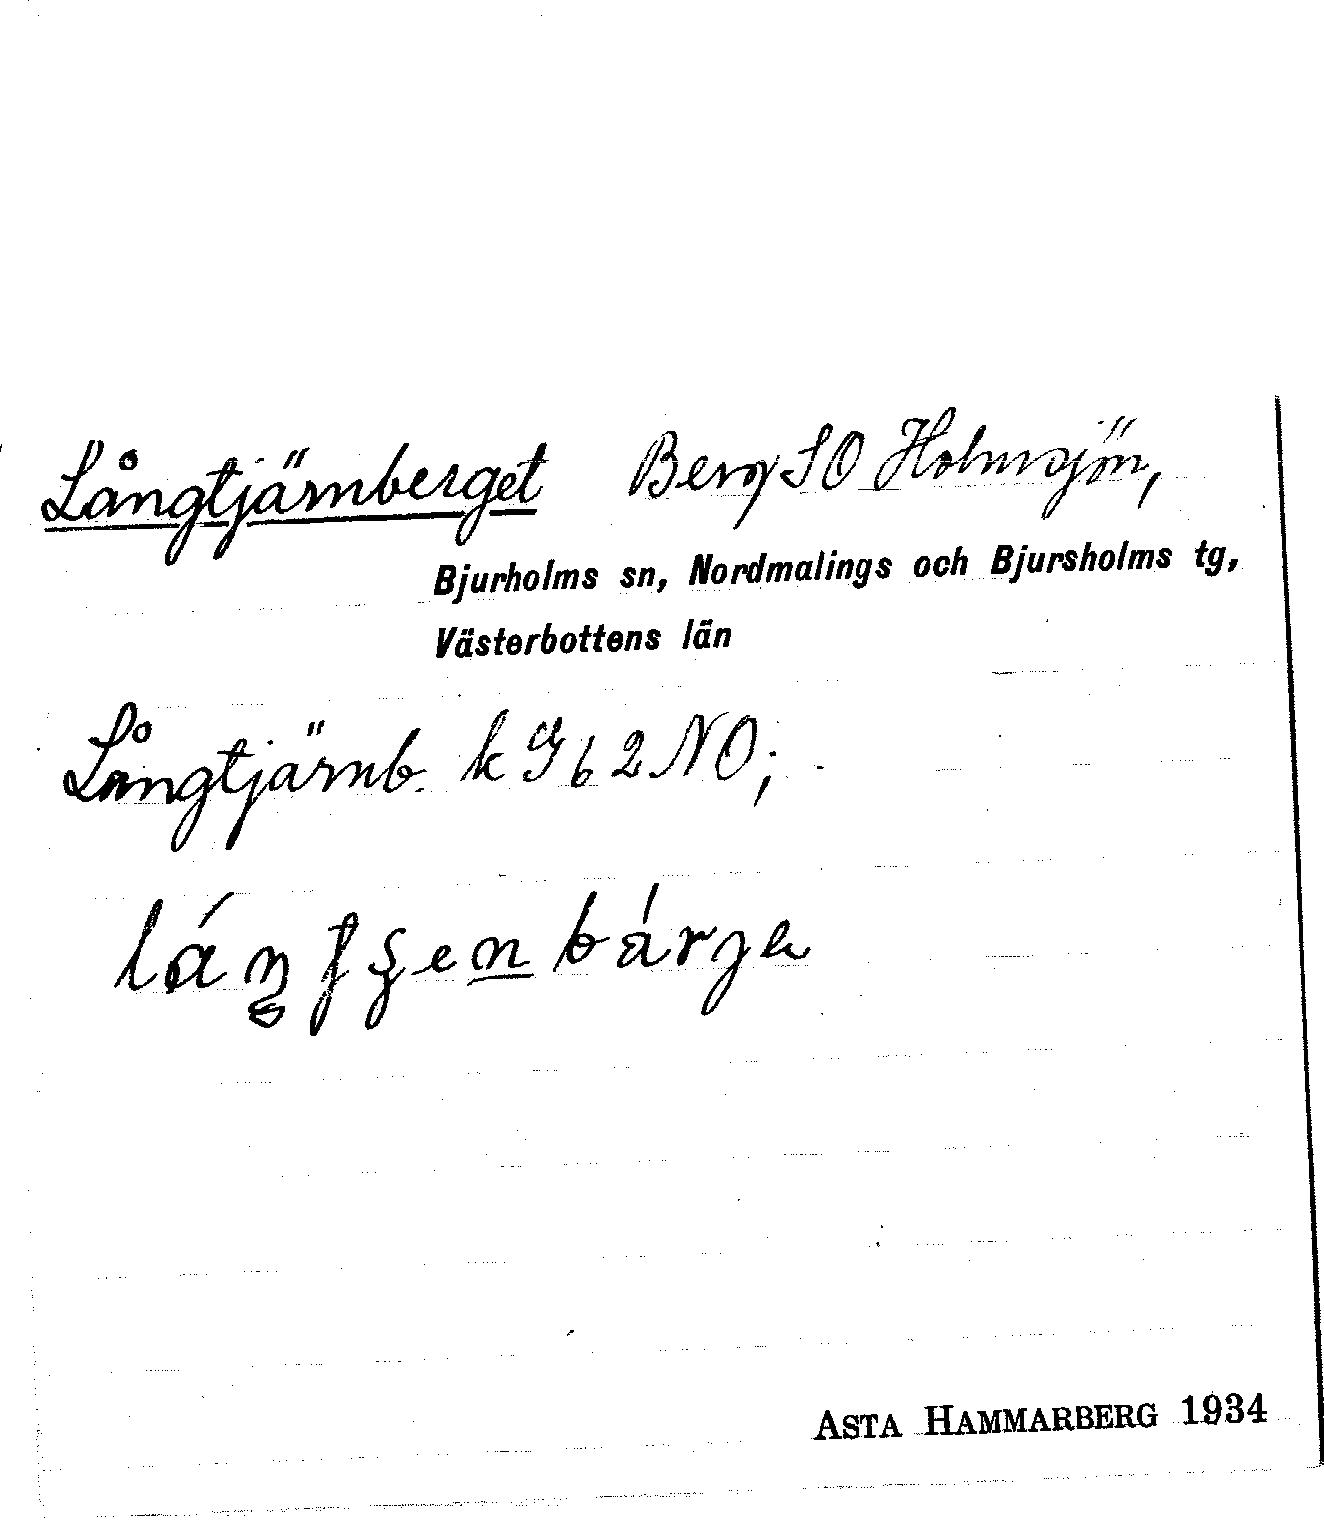 Långtjärnberget Berg SO Holmsjön,
Bjurholms sn, Nordmalings och Bjursholms tg,
Västerbottens län
Långtjärnb. k 2 NO;
ASTA HAMMARBERG 1934